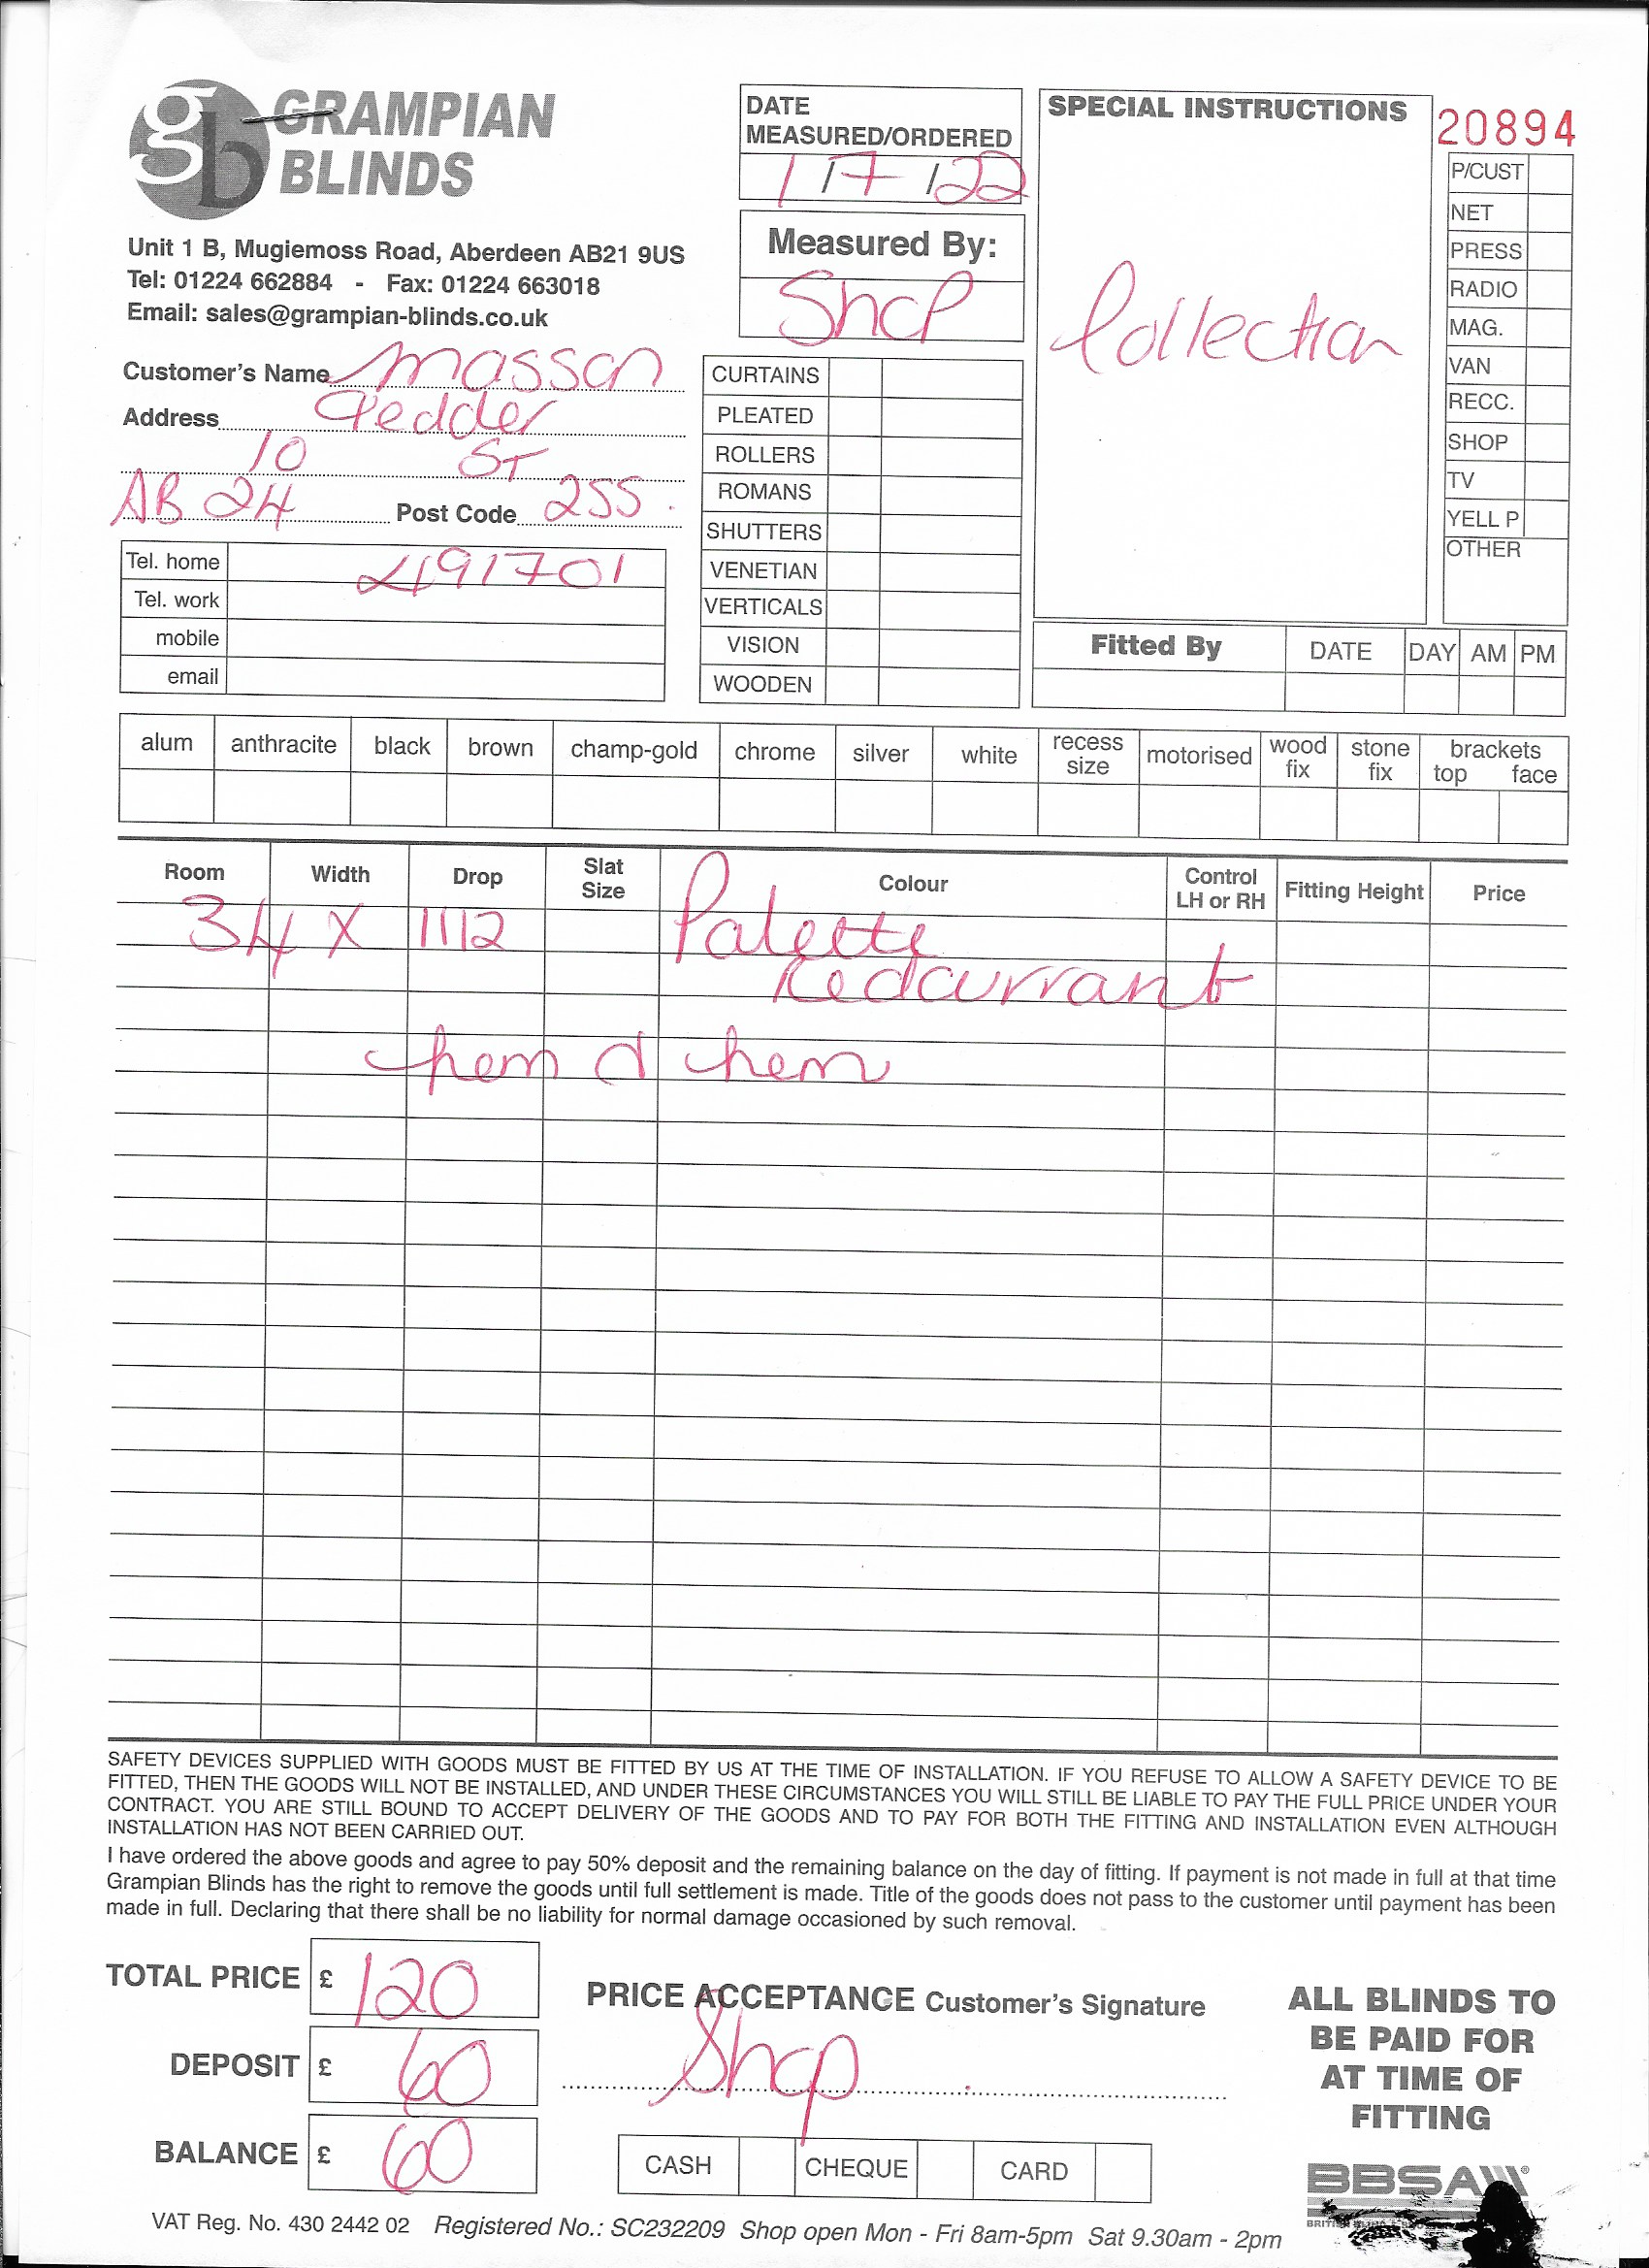 gb GRAMPIAN
BLINDS
Unit 1 B, Mugiemoss Road, Aberdeen AB21 9US
Tel: 01224 662884 - Fax: 01224 663018
Email: sales@grampian-blinds.co.uk
DATE
MEASURED/ORDERED
1/7/22
Measured By:
Shop
SPECIAL INSTRUCTIONS
Collection
20894
P/CUST
NET
PRESS
RADIO
MAG.
VAN
RECC.
SHOP
TV
YELL P
OTHER
Customer's Name Masson
Address Pedder
10 ST
AB 24 Post Code 2SS
Tel. home 491701
Tel. work
mobile
email
CURTAINS
PLEATED
ROLLERS
ROMANS
SHUTTERS
VENETIAN
VERTICALS
VISION
WOODEN
Fitted By DATE DAY AM PM
alum anthracite black brown champ-gold chrome silver white recess size motorised wood fix stone fix brackets top face
Room Width Drop Slat Size Colour Control LH or RH Fitting Height Price
34 X 1112 Palette
Redcurrant
hem hem
SAFETY DEVICES SUPPLIED WITH GOODS MUST BE FITTED BY US AT THE TIME OF INSTALLATION. IF YOU REFUSE TO ALLOW A SAFETY DEVICE TO BE
FITTED, THEN THE GOODS WILL NOT BE INSTALLED, AND UNDER THESE CIRCUMSTANCES YOU WILL STILL BE LIABLE TO PAY THE FULL PRICE UNDER YOUR
CONTRACT. YOU ARE STILL BOUND TO ACCEPT DELIVERY OF THE GOODS AND TO PAY FOR BOTH THE FITTING AND INSTALLATION EVEN ALTHOUGH
INSTALLATION HAS NOT BEEN CARRIED OUT.
I have ordered the above goods and agree to pay 50% deposit and the remaining balance on the day of fitting. If payment is not made in full at that time
Grampian Blinds has the right to remove the goods until full settlement is made. Title of the goods does not pass to the customer until payment has been
made in full. Declaring that there shall be no liability for normal damage occasioned by such removal.
TOTAL PRICE £ 120
DEPOSIT £ 60
BALANCE £ 60
PRICE ACCEPTANCE Customer's Signature
Shop
CASH CHEQUE CARD
ALL BLINDS TO
BE PAID FOR
AT TIME OF
FITTING
BBSA
VAT Reg. No. 430 2442 02 Registered No.: SC232209 Shop open Mon - Fri 8am-5pm Sat 9.30am - 2pm